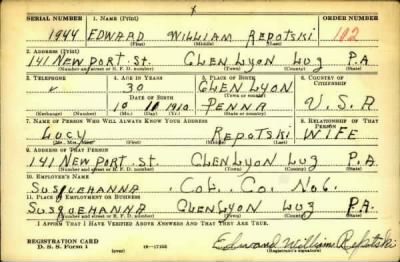 x
SERIAL NUMBER 1. NAME (Print) ORDER NUMBER
1944 EDWARD WILLIAM REPOTSKI 102
(First) (Middle) (Last)
2. ADDRESS (Print)
141 NEWPORT. St. GLEN LYON LUZ P.A
(Number and street or R. F. D. number) (Town) (County) (State)
3. TELEPHONE 4. AGE IN YEARS 5. PLACE OF BIRTH 6. COUNTRY OF CITIZENSHIP
30 GLEN LYON
DATE OF BIRTH
10 10 1910 PENNA U.S.A
(Exchange) (Number) (Mo.) (Day) (Yr.) (State or country)
7. NAME OF PERSON WHO WILL ALWAYS KNOW YOUR ADDRESS 8. RELATIONSHIP OF THAT PERSON
LUCY REPOTSKI WIFE
(Mr., Mrs., Miss) (First) (Middle) (Last)
9. ADDRESS OF THAT PERSON
141 NEWPORT. St. GLEN LYON LUZ P.A.
(Number and street or R. F. D. number) (Town) (County) (State)
10. EMPLOYER'S NAME
SUSQUEHANNA. COL. CO. No 6.
11. PLACE OF EMPLOYMENT OR BUSINESS
SUSQUEHANNA GLEN LYON LUZ PA.
(Number and street or R. F. D. number) (Town) (County) (State)
I AFFIRM THAT I HAVE VERIFIED ABOVE ANSWERS AND THAT THEY ARE TRUE.
REGISTRATION CARD
D. S. S. Form 1 (over) 16-17105 Edward William Repotski
(Registrant's signature)